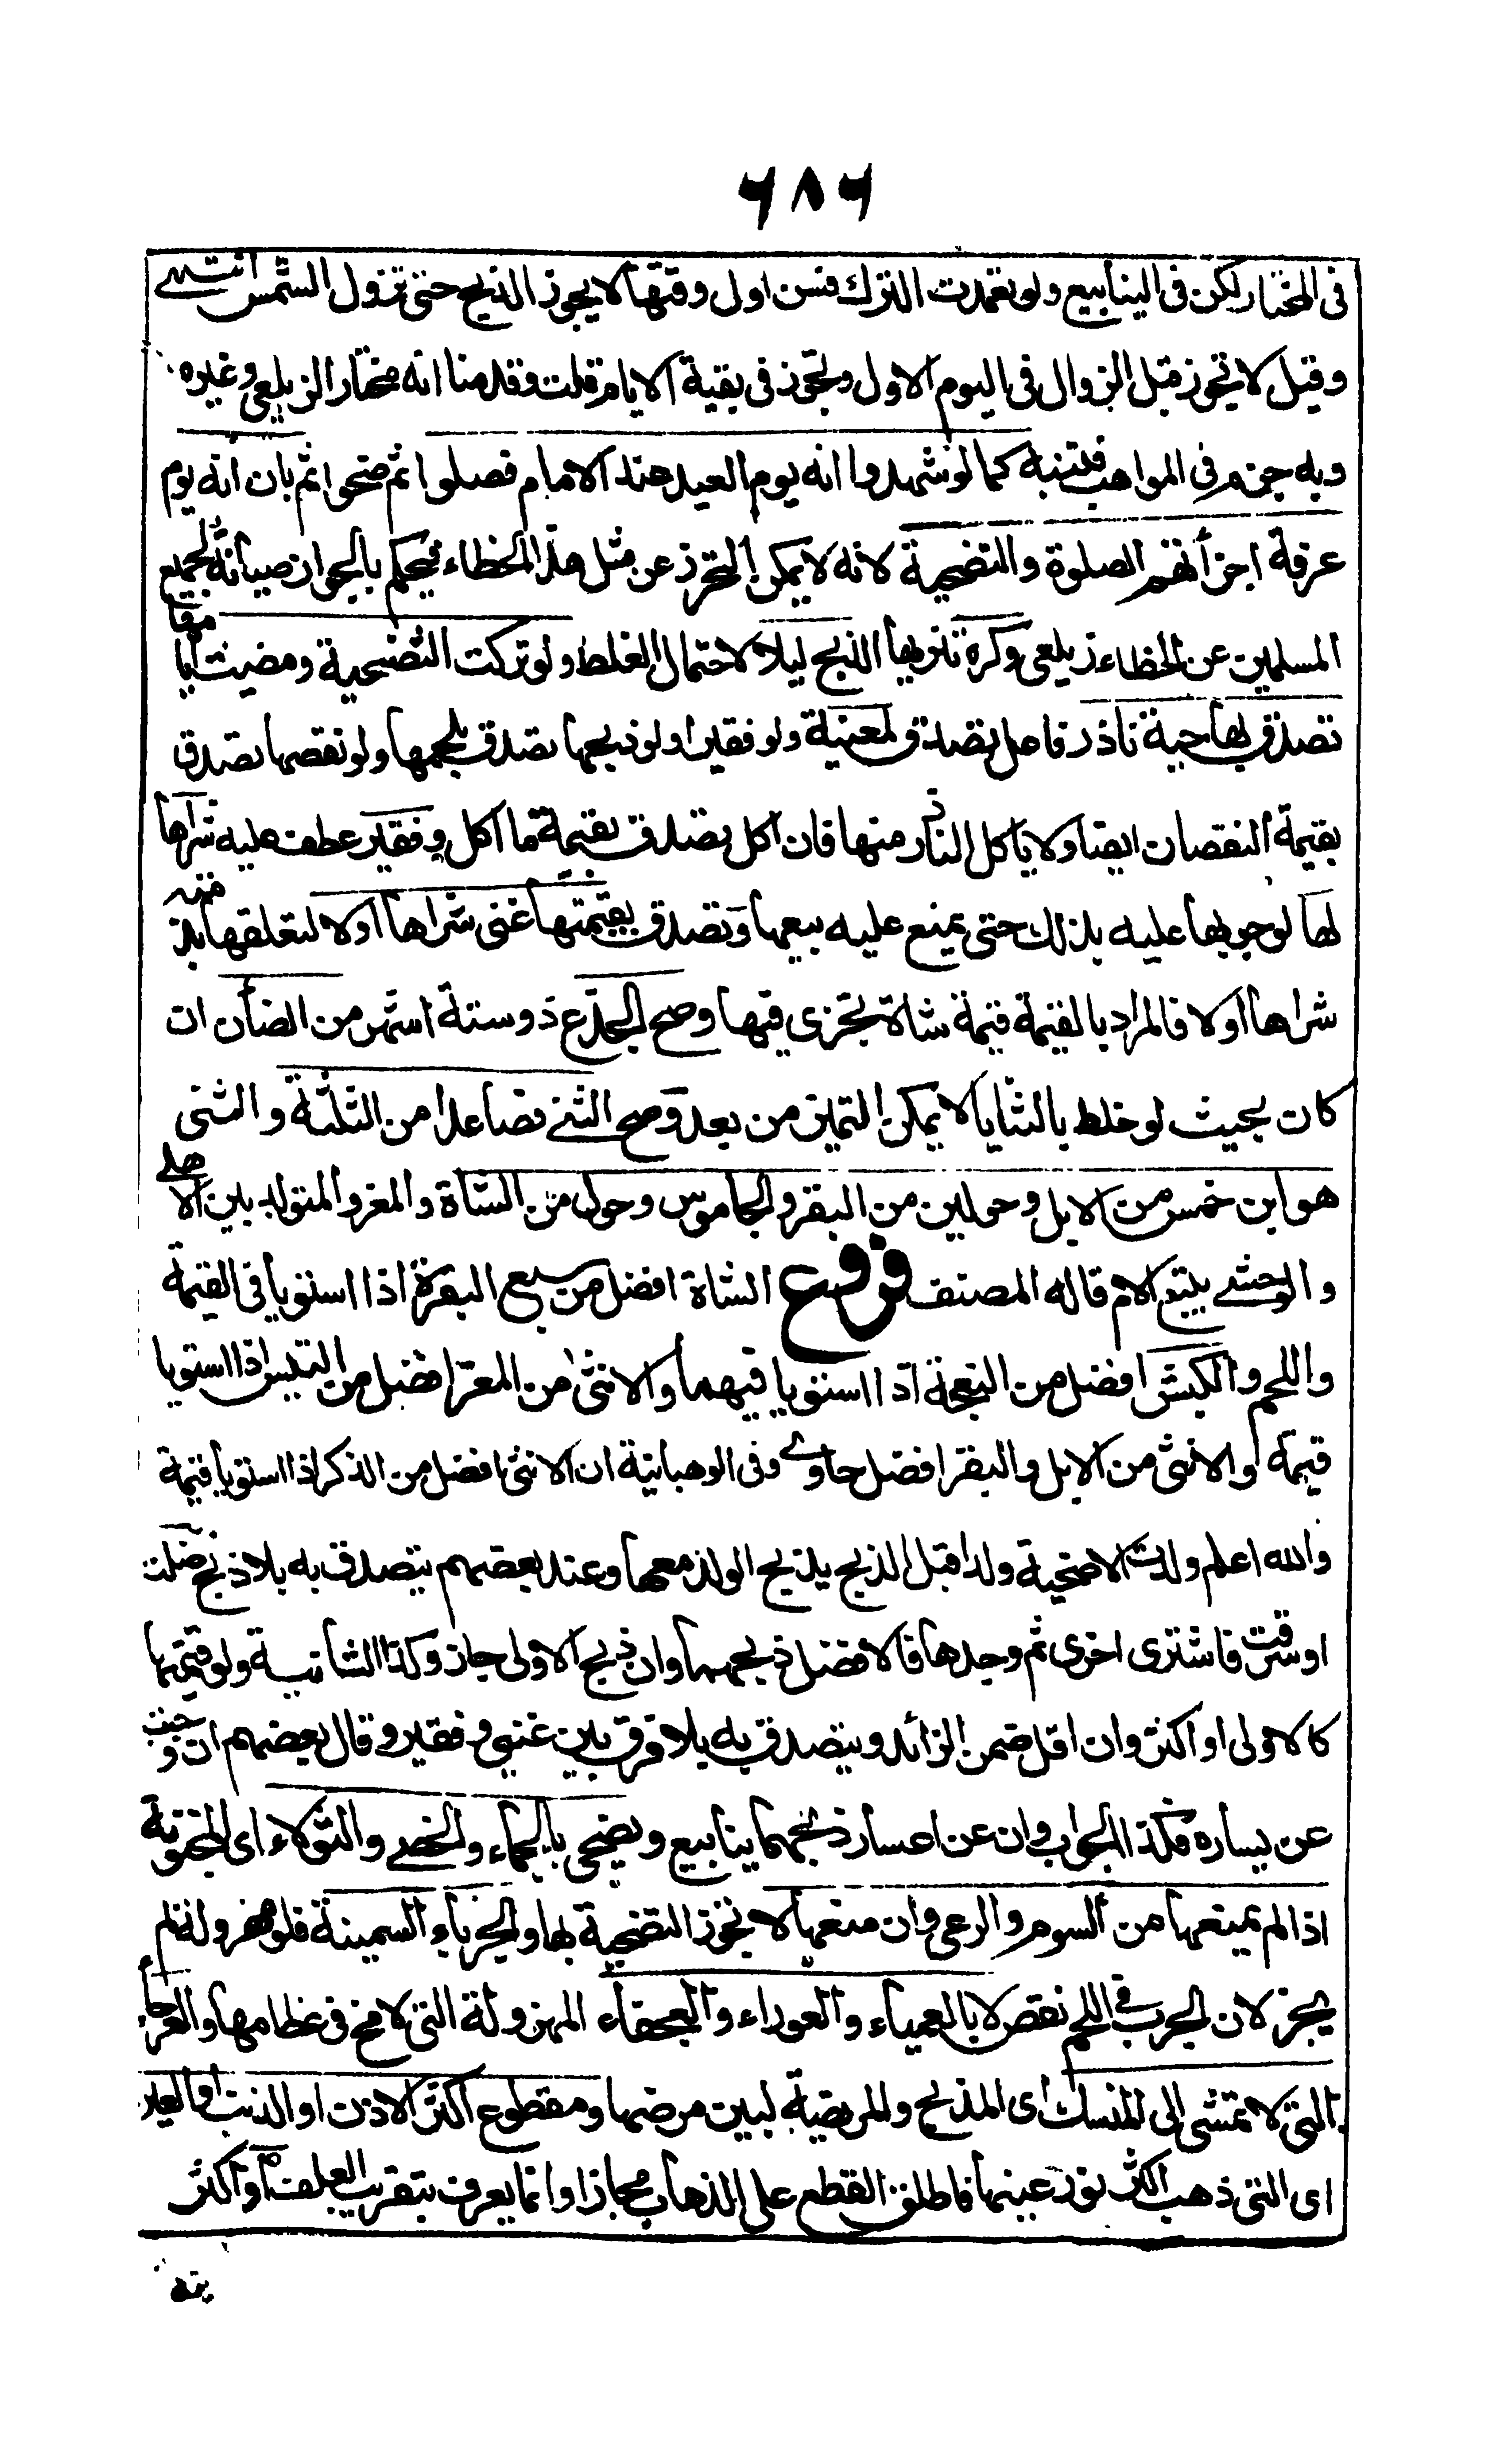 ٦٨٦
فى المختار لكن فى الينابيع ولو تعمدت الترك فسن اول وقتها لا يجوز الذبح حتى تزول الشمس انتهى
وقيل لا تجوز قبل الزوال فى اليوم الاول وتجوز فى بقية الايام قلت وقدمنا انه مختار الزيلعى وغيره
وبه جزم فى المواهب فتنبه كما لو شهدوا انه يوم العيد عند الامام فصلوا ثم ضحوا ثم بان انه يوم
عرفة اجزأتهم الصلوة والتضحية لانه لا يمكن التحرز عن مثل هذا الخطاء فيحكم بالجواز صيانة لجميع
المسلمين عن الخطاء زيلعى وكره تنزيها الذبح ليلا لاحتمال الغلط ولو تركت التضحية ومضت ايامها
تصدق بها حية ناذر فاعل تصدق لمعينة ولو فقيرا ولو ذبحها تصدق بلحمها ولو نقصها تصدق
بقيمة النقصان ايضا ولا ياكل الناذر منها فان اكل تصدق بقيمة ما اكل وفقير عطف عليه شراها
لها لوجوبها عليه بذلك حتى يمتنع عليه بيعها وتصدق بقيمتها غنى شراها اولا لتعلقها بذمته
شراها اولا فالمراد بالقيمة قيمة شاة تجزى فيها وصح الجذع ذو ستة اشهر من الضأن ان
كان بحيث لو خلط بالثنايا لا يمكن التميز من بعد وصح الثنى فصاعدا من الثلثة والثنى
هو ابن خمس من الابل وحولين من البقر والجاموس وحول من الشاة والمعز والمتولد بين الاهلى
والوحشى يتبع الام قاله المصنف فروع الشاة افضل من سبع البقرة اذا استويا فى القيمة
واللحم والكبش افضل من النعجة اذا استويا فيهما والانثى من المعز افضل من التيس اذا استويا
قيمة والانثى من الابل والبقر افضل حاوى وفى الوهبانية ان الانثى افضل من الذكر اذا استويا قيمة
والله اعلم ولدت الاضحية ولدا قبل الذبح يذبح الولد معها وعند بعضهم يتصدق به بلا ذبح ضلت
او سرقت فاشترى اخرى ثم وجدها فالافضل ذبحهما وان ذبح الاولى جاز وكذا الثانية ولو قيمتها
كالاولى او اكثر وان اقل ضمن الزائد ويتصدق به بلا فرق بين غنى وفقير وقال بعضهم ان وجبت
عن يساره فكذا الجواب وان عن اعسار ذبحهما ينابيع ويضحى بالجماء والخصى والثولاء اى المجنونة
اذا لم يمنعها من السوم والرعى وان منعها لا تجوز التضحية بها والجرباء السمينة فلو مهزولة لم
يجز لان الجرب فى اللحم نقص لا بالعمياء والعوراء والعجفاء المهزولة التى لا مخ فى عظامها والعرجاء
التى لا تمشى الى المنسك اى المذبح والمريضة لبين مرضها ومقطوع اكثر الاذن او الذنب او العين
اى التى ذهب اكثر نور عينها فاطلق القطع على الذهاب مجازا وانما يعرف بتقريب العلف او اكثر